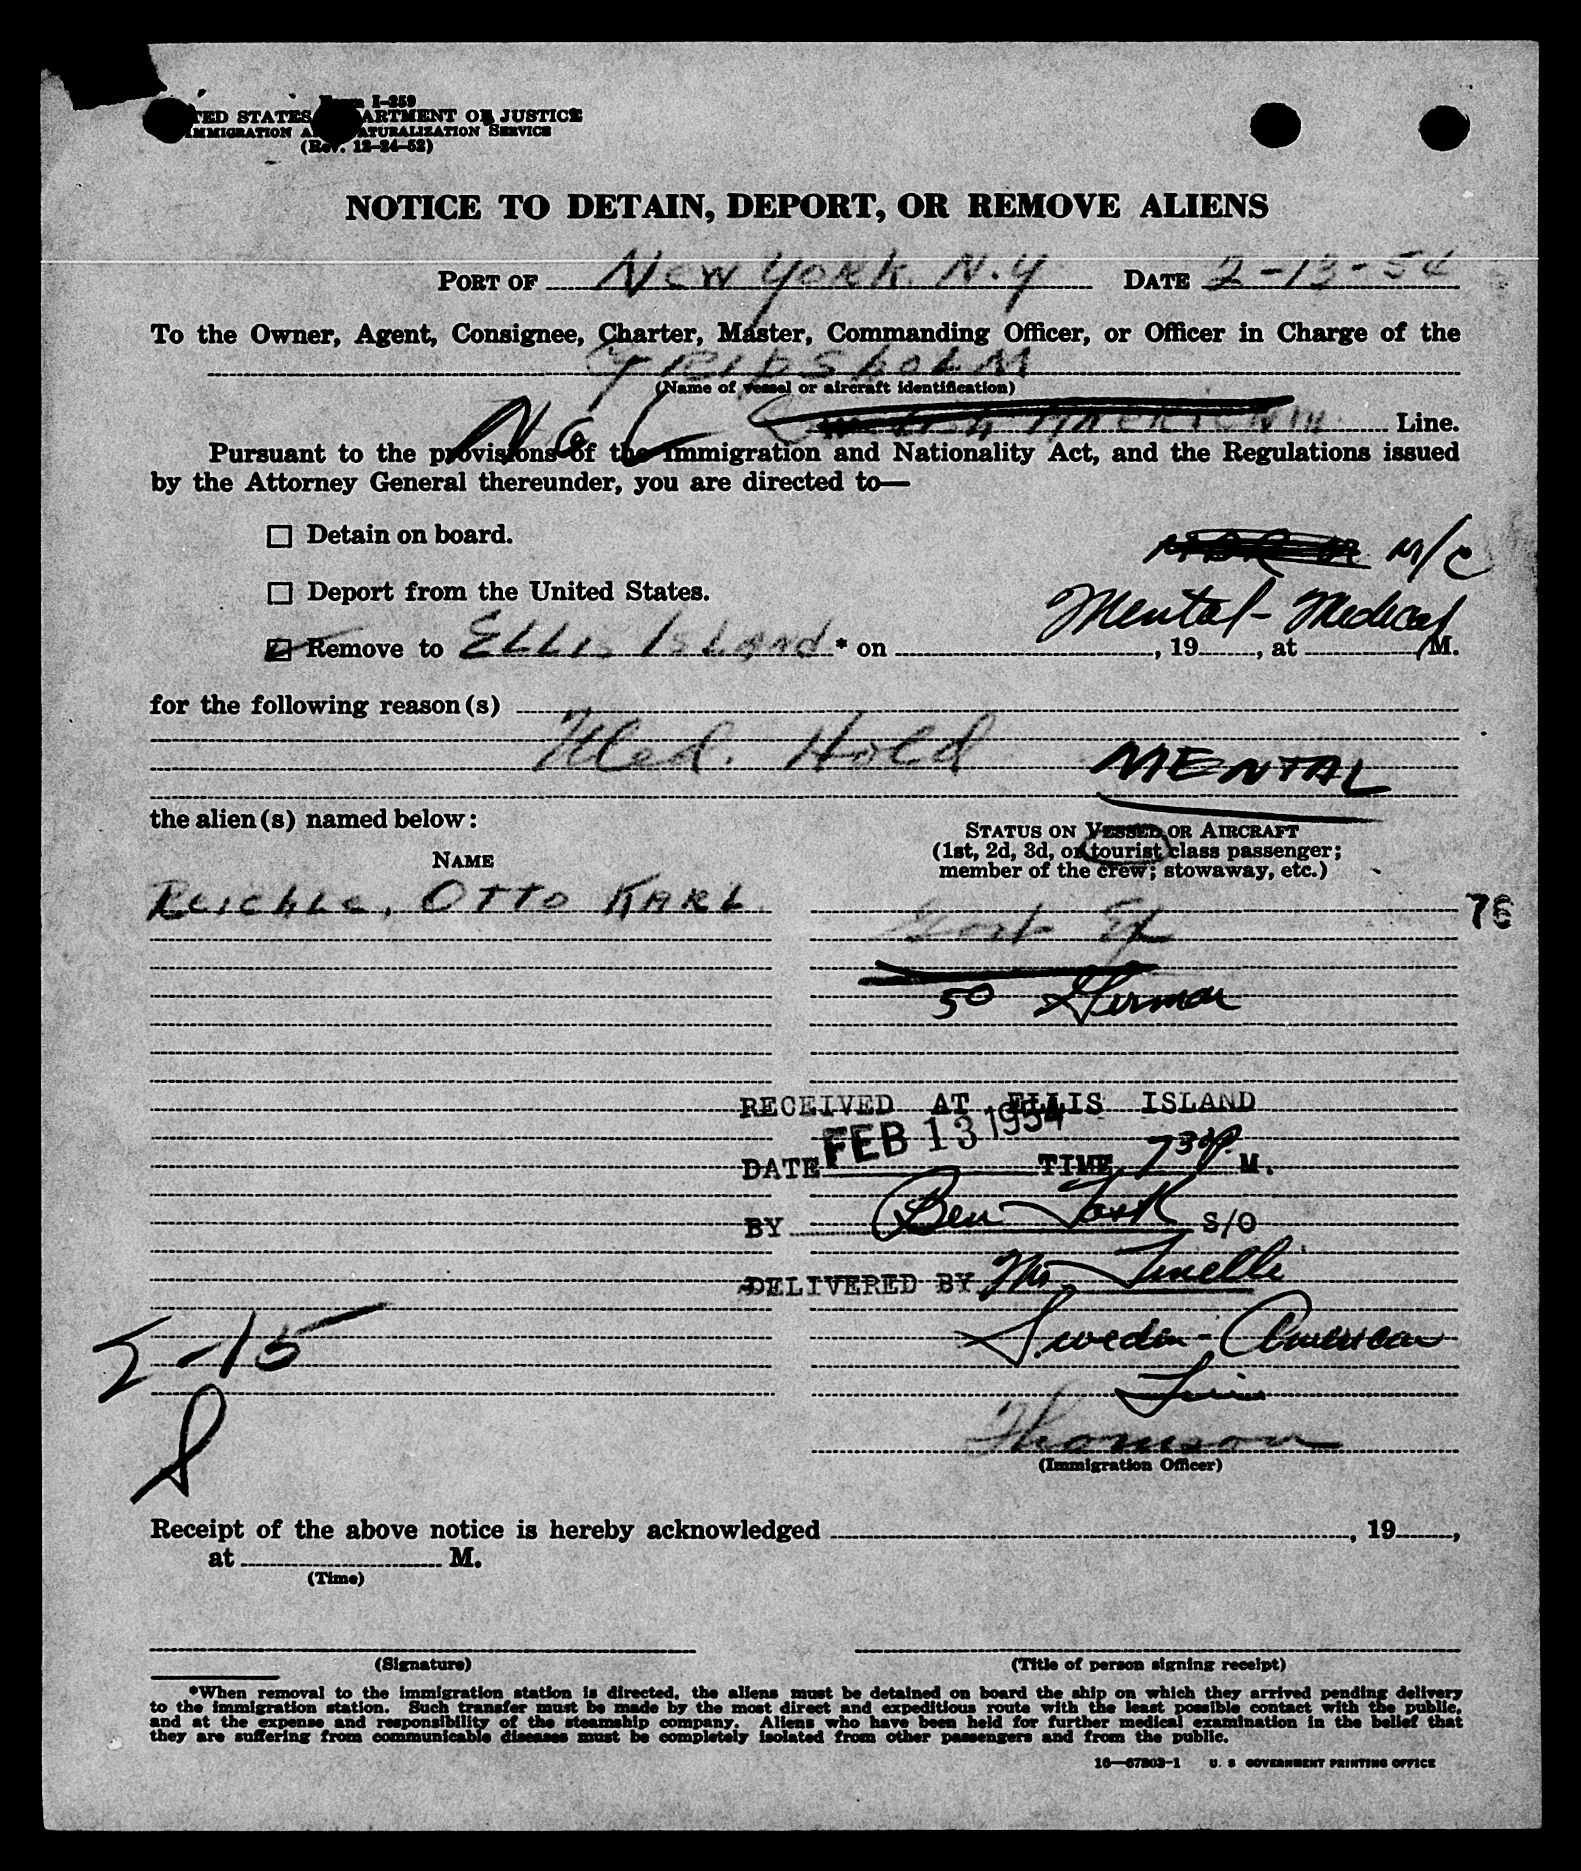 Form I-259
UNITED STATES DEPARTMENT OF JUSTICE
IMMIGRATION AND NATURALIZATION SERVICE
(Rev. 12-24-52)
NOTICE TO DETAIN, DEPORT, OR REMOVE ALIENS
PORT OF New York, N.Y DATE 2-13-54
To the Owner, Agent, Consignee, Charter, Master, Commanding Officer, or Officer in Charge of the
GRIPSHOLM
(Name of vessel or aircraft identification)
Line.
Pursuant to the provisions of the Immigration and Nationality Act, and the Regulations issued
by the Attorney General thereunder, you are directed to—
☐ Detain on board.
M/C
☐ Deport from the United States.
Mental - Medical
☑ Remove to Ellis Island * on , 19 , at M.
for the following reason(s)
Med. Hold
MENTAL
the alien(s) named below:
STATUS ON VESSEL OR AIRCRAFT
(1st, 2d, 3d, or tourist class passenger;
member of the crew; stowaway, etc.)
NAME
Reichle, Otto Karl
76
50 German
RECEIVED AT ELLIS ISLAND
DATE FEB 13 1954 TIME 7 30 P M.
BY Ben Task S/O
DELIVERED BY Mr. Tinelli
Sweden-American
Line
2-15
Thomson
(Immigration Officer)
Receipt of the above notice is hereby acknowledged , 19 ,
at M.
(Time)
(Signature)
(Title of person signing receipt)
*When removal to the immigration station is directed, the aliens must be detained on board the ship on which they arrived pending delivery
to the immigration station. Such transfer must be made by the most direct and expeditious route with the least possible contact with the public,
and at the expense and responsibility of the steamship company. Aliens who have been held for further medical examination in the belief that
they are suffering from communicable diseases must be completely isolated from other passengers and from the public.
16—67803-1 U. S. GOVERNMENT PRINTING OFFICE